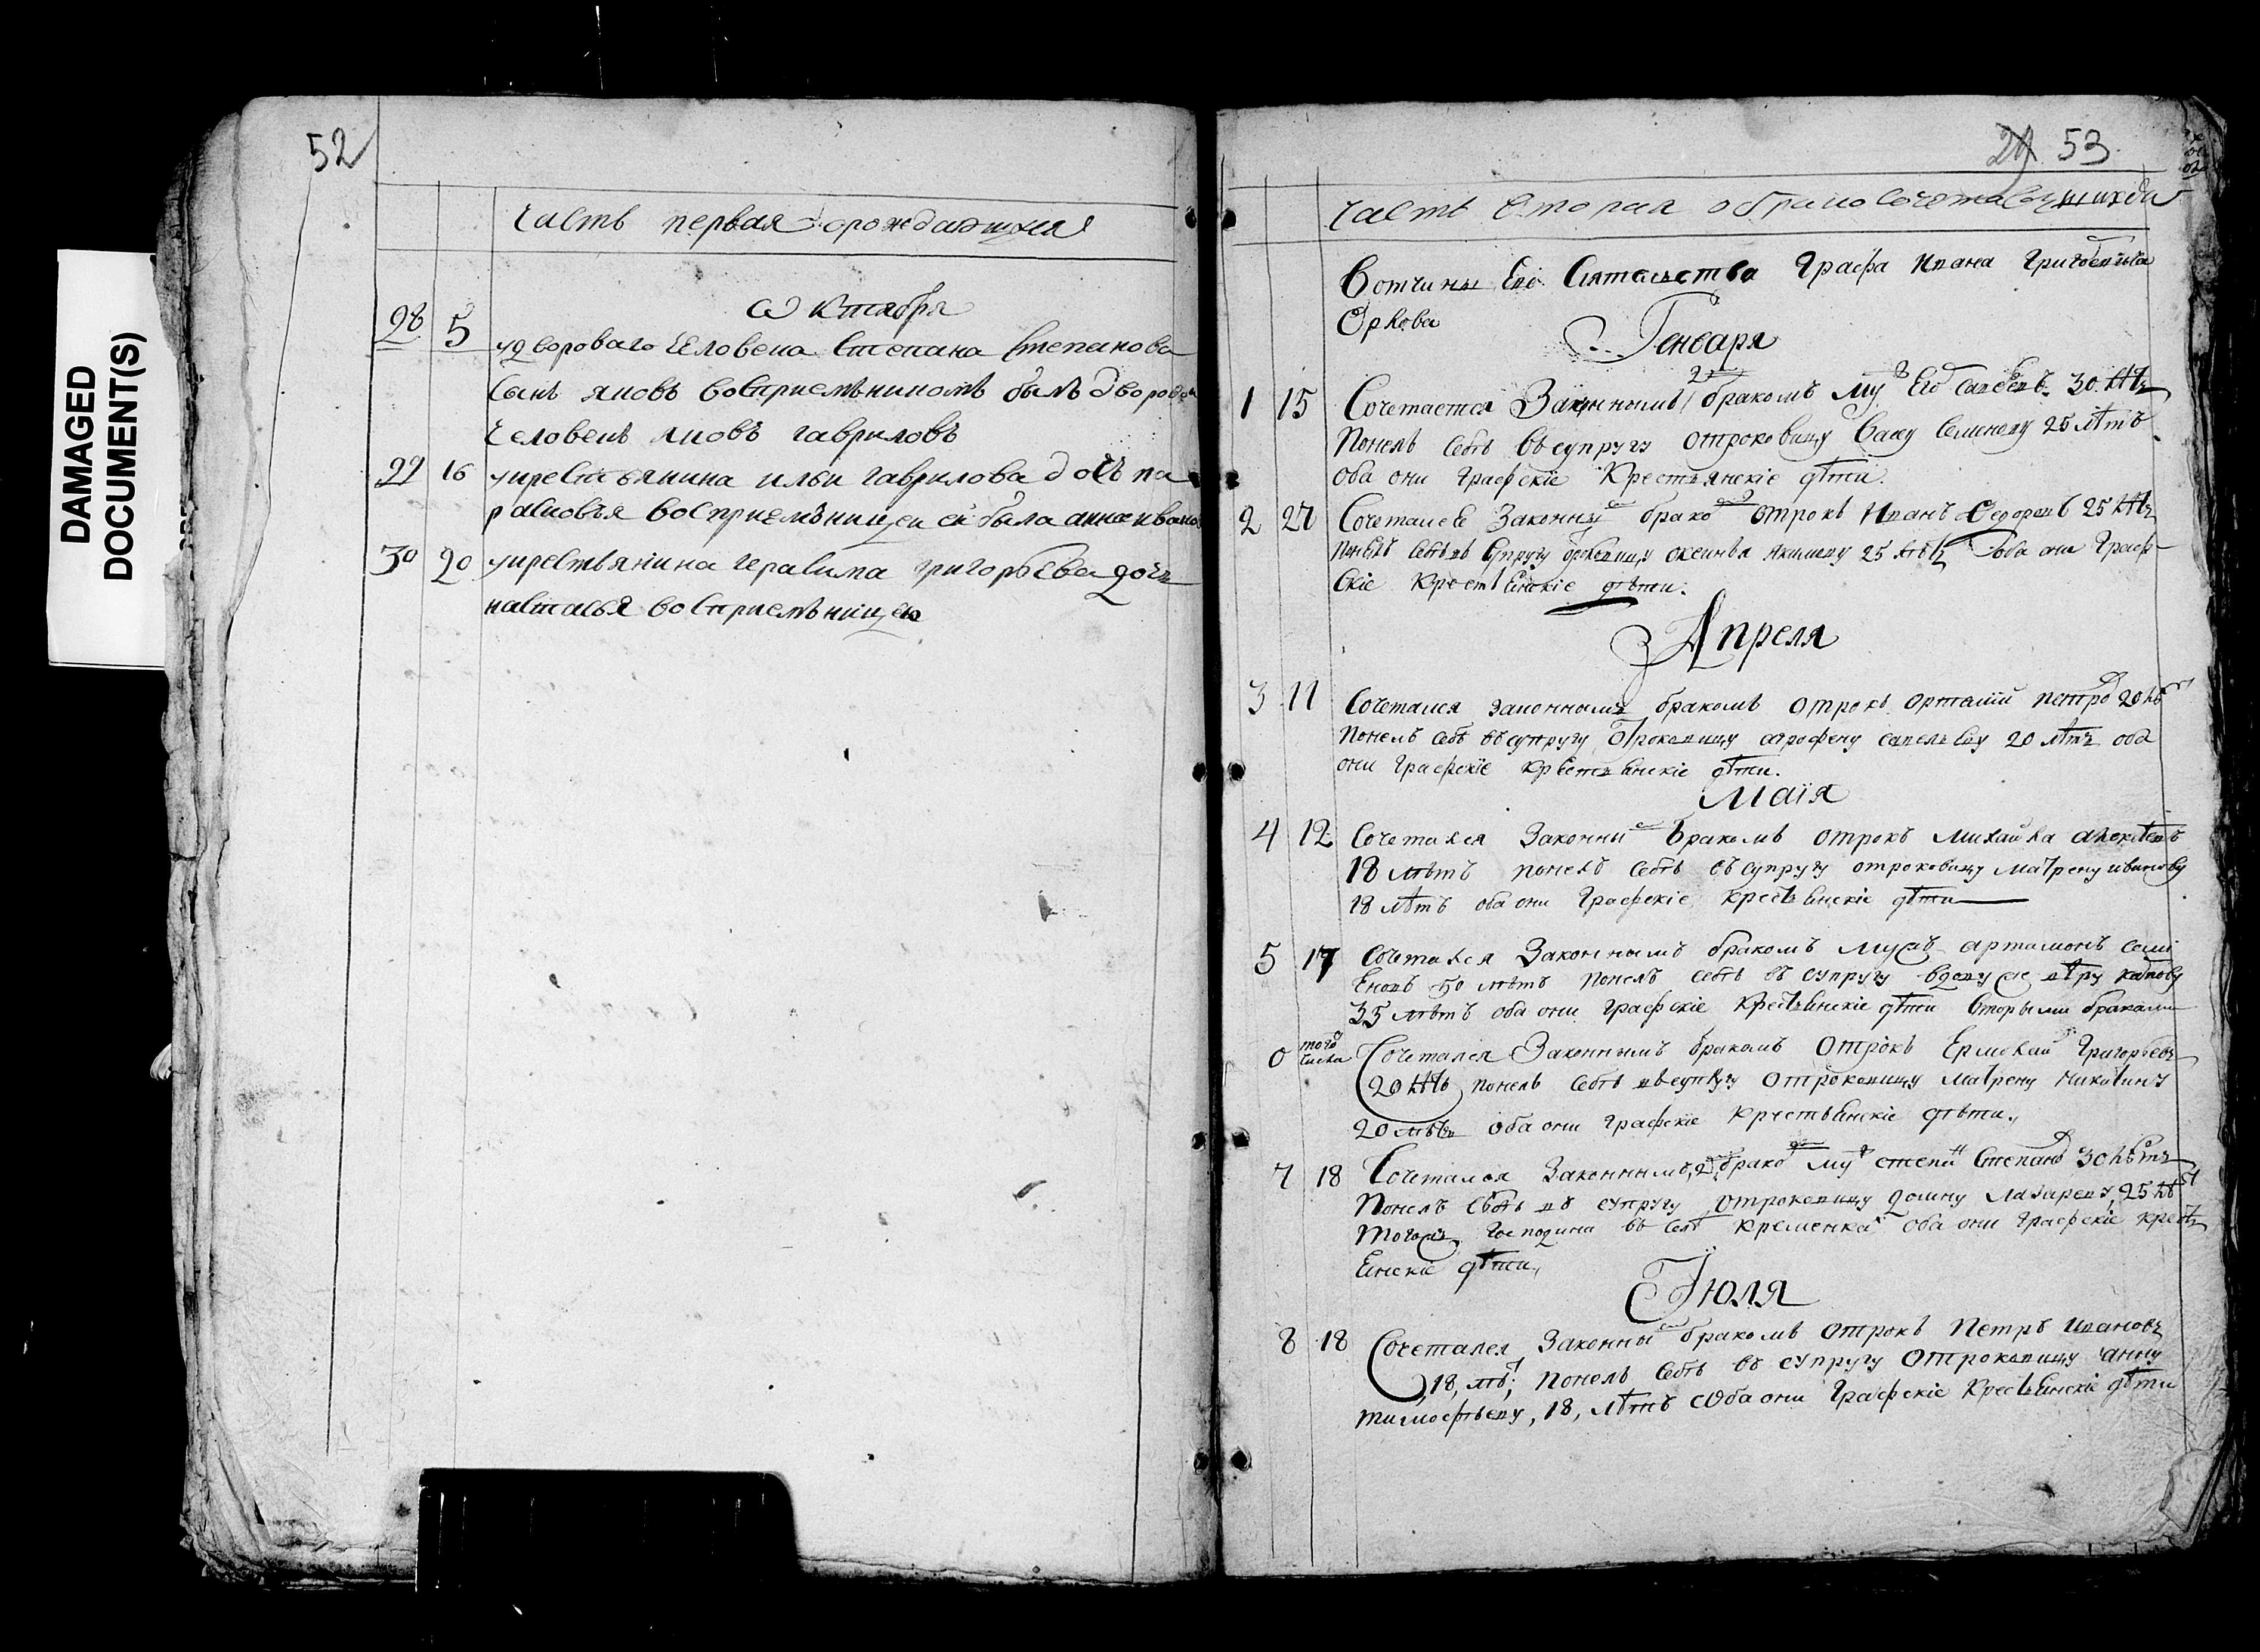 DAMAGED
DOCUMENT(S)
52
Часть первая орождающихся
Октября
28 5 удвороваго человека Степана Степанова
сынъ яковъ восприемъникомъ былъ дворовои
человекъ яковъ гавриловъ
29 16 укрестьянина ильи гаврилова дочь па
расковья восприемъницеи еи была анна ивано
30 20 укрестьянина герасима григорьева дочь
насталья восприемъницею
53
Часть вторая обракосочетавшихся
Вотчины Его Сиятельства Графа Ивана Григоевича
Орлова
Генваря
1 15 Сочетается Законнымъ 2 бракомъ му 30 лѣтъ
Понелъ себѣ въсупругу отроковицу Семенову 25 лѣтъ
оба они Графскіе Крестьянскіе дѣти.
2 27 Сочетался Законны брако отрокъ Иванъ Федоровъ 25 лѣтъ
понелъ себѣ въ супругу Акимову 25 лѣтъ оба они Граф-
скіе Крестьянскіе дѣти.
Апреля
3 11 Сочетался законнымъ бракомъ отрокъ Петро 20 лѣ
Понелъ себѣ въсупругу Отроковицу агрофену савельеву 20 лѣтъ оба
они Графскіе крестьянскіе дѣти.
Маія
4 12 Сочетался Законны бракомъ отрокъ михаила алексѣевъ
18 лѣтъ понелъ себѣ въсупругу отроковицу матрену иванову
18 лѣтъ оба они Графскіе крестьянскіе дѣти
5 17 Сочетался Законнымъ бракомъ мужъ артамонъ семі
еновъ 50 лѣтъ понелъ себѣ въ супругу вдову
35 лѣтъ оба они Графскіе крестьянскіе дѣти вторыми браками
0 того числа Сочетался Законнымъ бракомъ Отрокъ Ермолаи Григорьевъ
20 лѣтъ понелъ себѣ въсупругу Отроковицу матрену никитину
20 лѣтъ оба они Графскіе крестьянскіе дѣти.
7 18 Сочетался Законнымъ, 2, брако му степа Степано 30 лѣтъ
Понелъ себѣ въ супругу Отроковицу домну лазареву, 25 лѣт
тогожъ господина въ селѣ Кременка оба они Графскіе кресть
янскіе дѣти,
Іюля
8 18 Сочетался Законны бракомъ Отрокъ Петръ Ивановъ
,18, лѣт; понелъ себѣ въ супругу Отроковицу анну
тимофѣеву, 18, лѣтъ оба они Графскіе Крестьянскіе дѣти